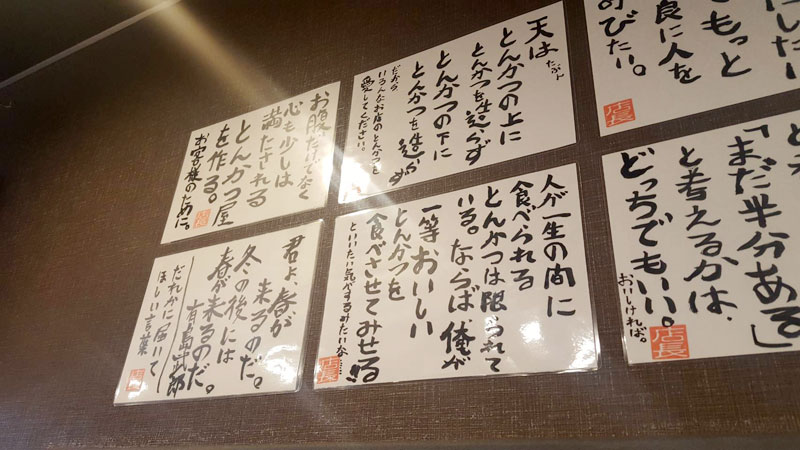 お腹だけでなく
心も少しは
満たされる
とんかつ屋
を作る。
お客様のために。
天は
たぶん
とんかつの上に
とんかつを造らず
とんかつの下に
とんかつを造らず
だから
いろんなお店のとんかつを
愛してください。
もっと
良に人を
びたい。
店長
君よ、春が
来るのだ。
冬の後には
春が来るのだ。
有島武郎
だれかに届いて
ほしい言葉
人が一生の間に
食べられる
とんかつは限られて
いる。ならば、俺が
一等おいしい
とんかつを
食べさせてみせる!!
といいたい気がするみたいな……
店長
「まだ半分ある」
と考えるかは、
どっちでもいい。
おいしければ。
店長